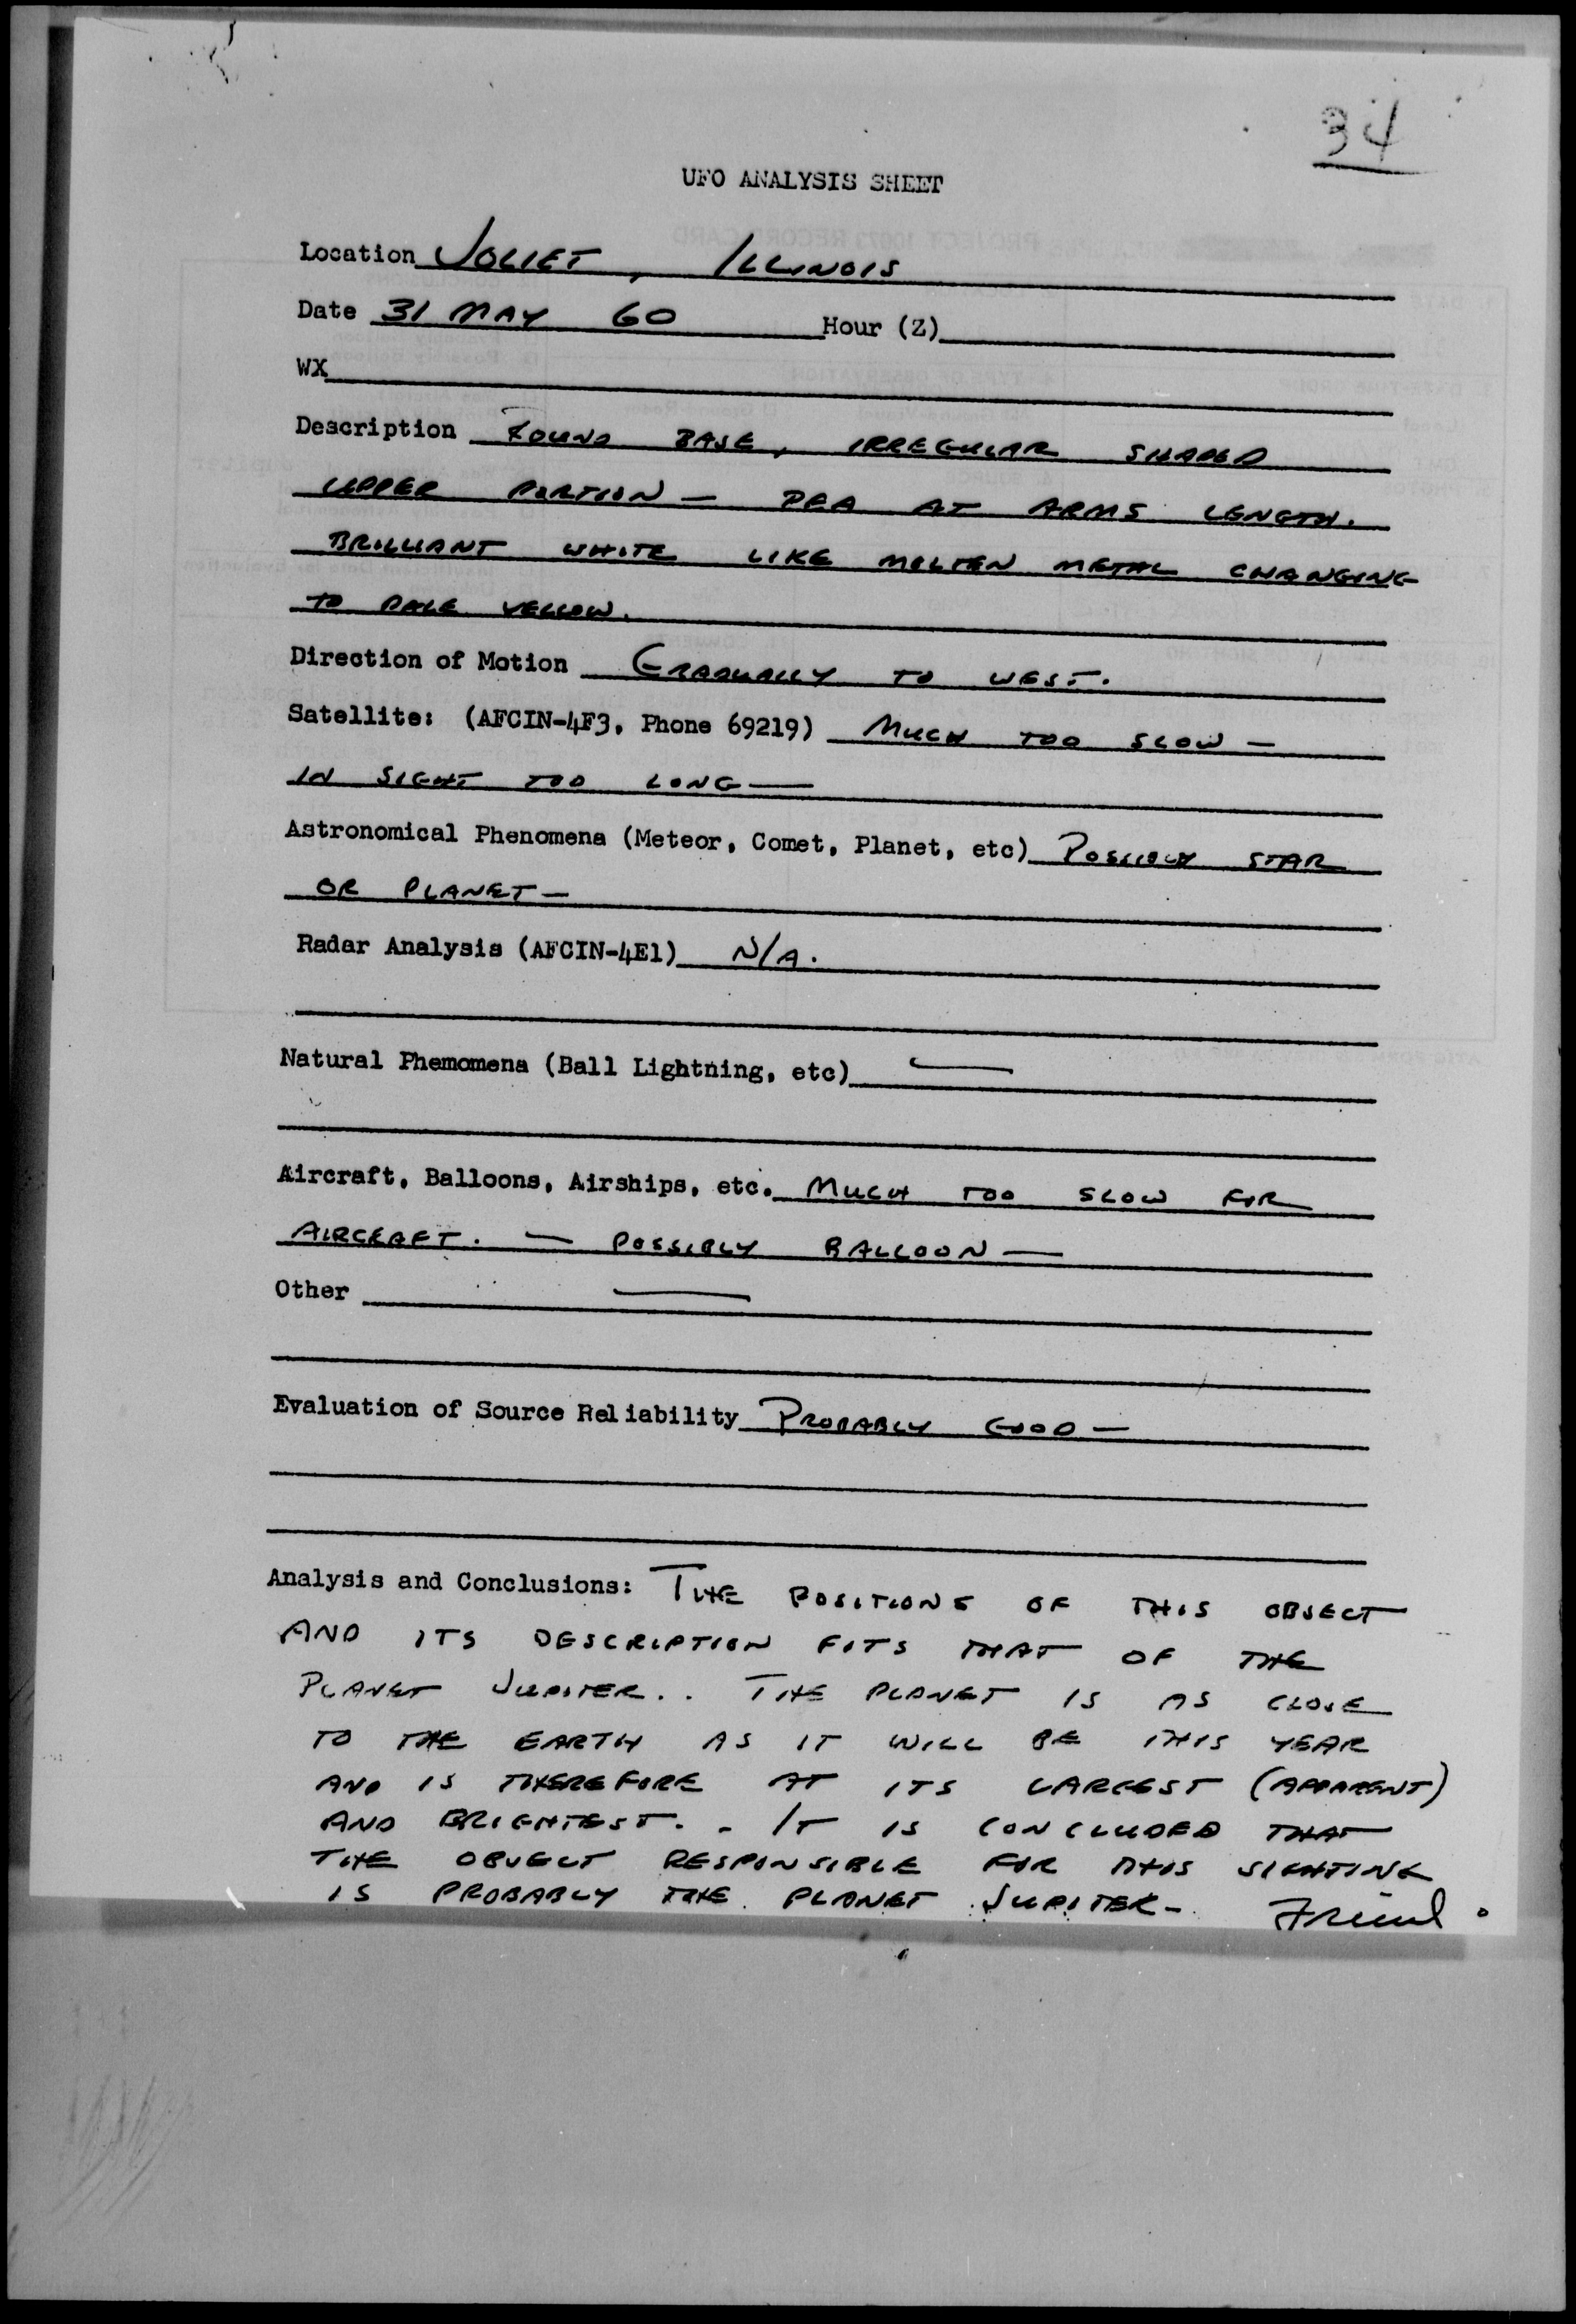 34
UFO ANALYSIS SHEET
Location JOLIET, ILLINOIS
Date 31 MAY 60 Hour (Z)
WX
Description ROUND BASE, IRREGULAR SHAPED
UPPER PORTION — PEA AT ARMS LENGTH.
BRILLIANT WHITE LIKE MOLTEN METAL CHANGING
TO PALE YELLOW.
Direction of Motion GRADUALLY TO WEST.
Satellite: (AFCIN-4F3, Phone 69219) MUCH TOO SLOW —
IN SIGHT TOO LONG —
Astronomical Phenomena (Meteor, Comet, Planet, etc) POSSIBLY STAR
OR PLANET —
Radar Analysis (AFCIN-4E1) N/A.
Natural Phemomena (Ball Lightning, etc) —
Aircraft, Balloons, Airships, etc. MUCH TOO SLOW FOR
AIRCRAFT. — POSSIBLY BALLOON —
Other —
Evaluation of Source Reliability PROBABLY GOOD —
Analysis and Conclusions: THE POSITIONS OF THIS OBJECT
AND ITS DESCRIPTION FITS THAT OF THE
PLANET JUPITER.. THE PLANET IS AS CLOSE
TO THE EARTH AS IT WILL BE THIS YEAR
AND IS THEREFORE AT ITS LARGEST (APPARENT)
AND BRIGHTEST. - IT IS CONCLUDED THAT
THE OBJECT RESPONSIBLE FOR THIS SIGHTING
IS PROBABLY THE PLANET JUPITER - Friend